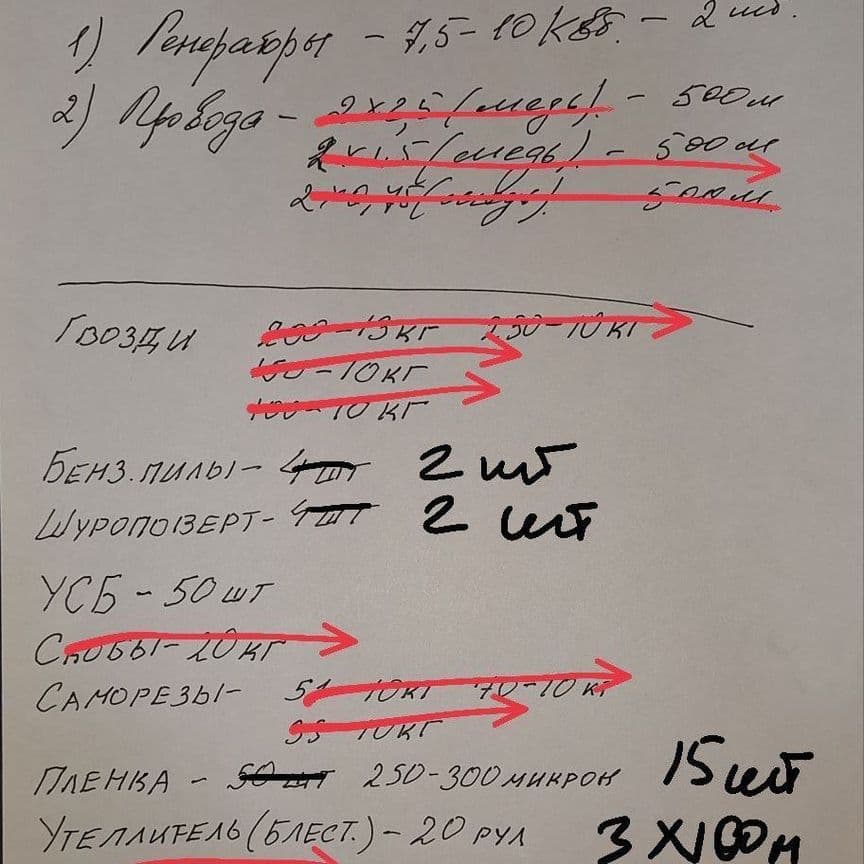 1) Генераторы - 7,5-10 Квт. - 2 шт.
2) Провода - 2×2,5 (медь). - 500м
2×1,5 (медь). - 500м
2×0,75 (медь). 500м.
Гвозди 200-15кг 250-10кг
150-10кг
100-10кг
Бенз.пилы- 4шт 2 шт
Шуроповерт- 4шт 2 шт
УСБ - 50шт
Скобы- 20кг
Саморезы- 51 10кг 70-10кг
35 10кг
Пленка - 50шт 250-300микрон 15 шт
Утеплитель (блест.) - 20 рул 3 х100м